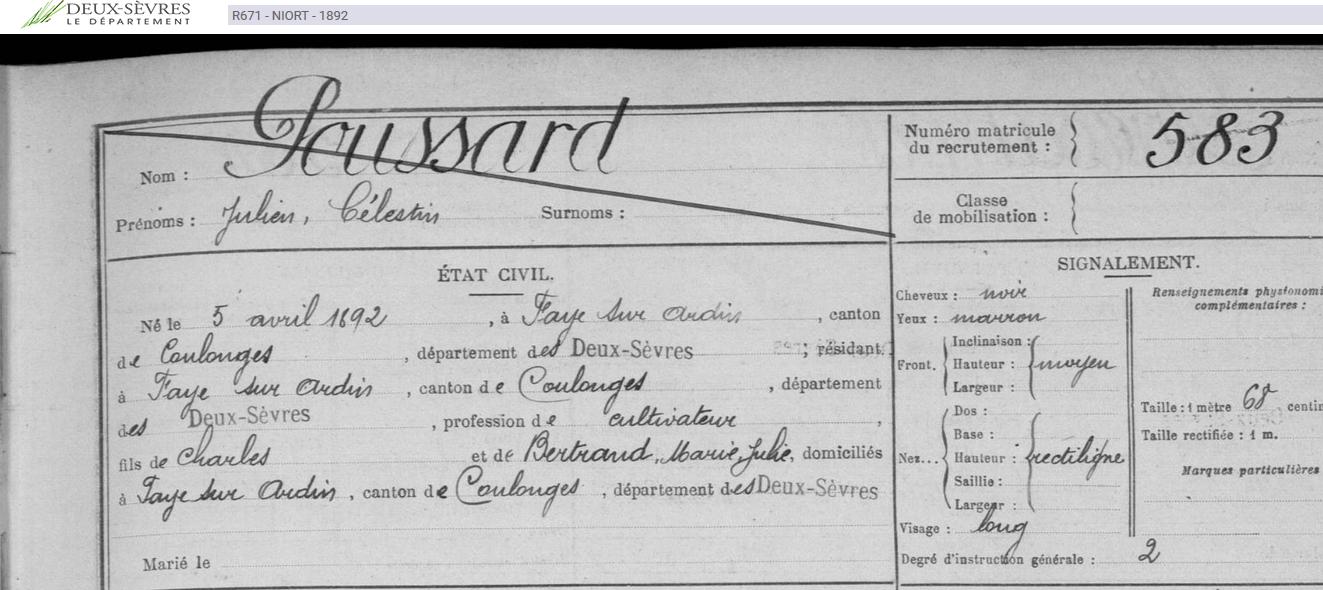 DEUX-SÈVRES
LE DÉPARTEMENT
R671 - NIORT - 1892
Nom : Poussard
Prénoms : Julien, Célestin Surnoms :
Numéro matricule
du recrutement : 583
Classe
de mobilisation :
ÉTAT CIVIL.
Né le 5 avril 1892, à Faye sur Ardin, canton
de Coulonges, département des Deux-Sèvres ; résidant
à Faye sur Ardin, canton de Coulonges, département
des Deux-Sèvres, profession de cultivateur,
fils de Charles et de Bertrand, Marie, Julie, domiciliés
à Faye sur Ardin, canton de Coulonges, département des Deux-Sèvres
Marié le
SIGNALEMENT.
Cheveux : noir
Yeux : marron
Front. Inclinaison :
Hauteur : moyen
Largeur :
Nez... Dos :
Base :
Hauteur : rectiligne
Saillie :
Largeur :
Visage : long
Degré d'instruction générale : 2
Renseignements physionomi
complémentaires :
Taille : 1 mètre 68 centim
Taille rectifiée : 1 m.
Marques particulières